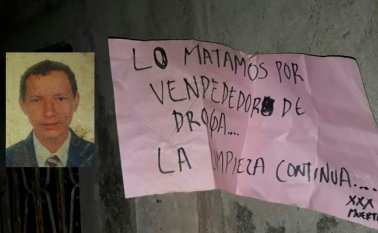 LO MATAMOS POR
VENDEDEDOR DE
DROGA...
LA LIMPIEZA CONTINUA....
XXX
MUERTE